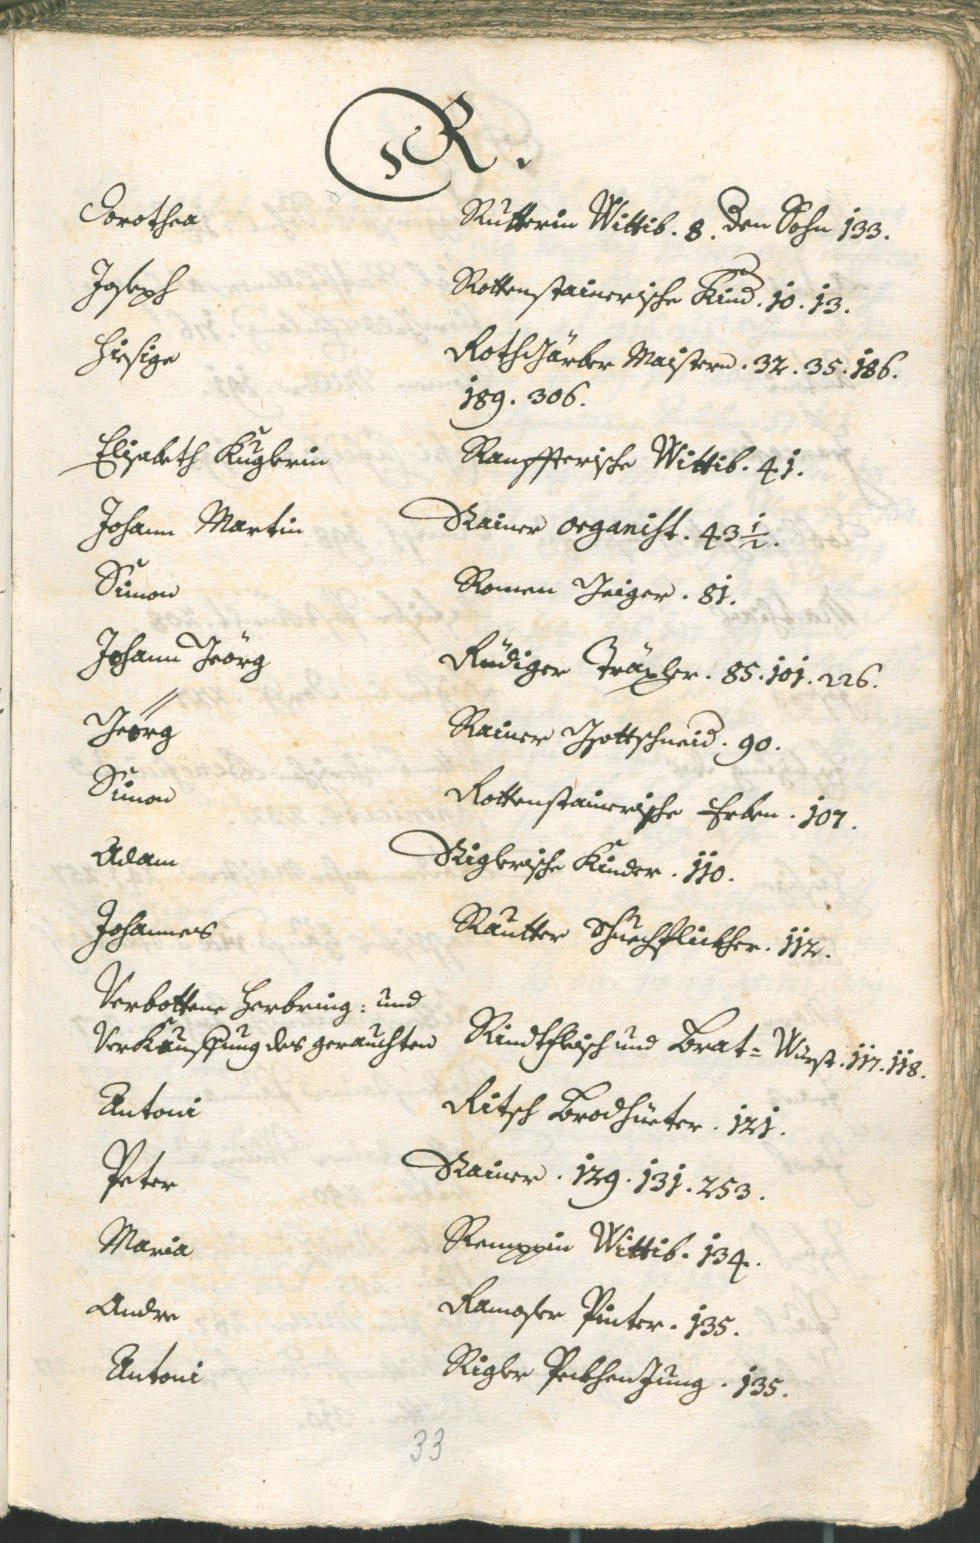 R.
Dorothea Rutterin Wittib. 8. den Sohn 133.
Joseph Rottenstainerische Kind. 10. 13.
Hiesige Rothgärber Maistern. 32. 35. 186.
189. 306.
Elisabeth Kuglerin Wittib. 41.
Johann Martin Rainer organist. 43 1/2.
Simon Romen Geiger. 81.
Johann Geörg Rüdiger Träxler. 85. 101. 226.
Geörg Rainer Gottschneid. 90.
Simon Rottenstainerische Erben. 107.
Adam Riglerische Kinder. 110.
Johannes Rautter Schuechflickher. 112.
Verbottene Herbring: und
Verkauffung des gerauchten Rindtfleisch und Brat= Würst. 117. 118.
Antoni Ritsch Brodhüeter. 121.
Peter Rainer. 129. 131. 253.
Maria Remppin Wittib. 134.
Andre Ramoser Pinter. 135.
Antoni Rigler Peckhen Jung. 135.
33